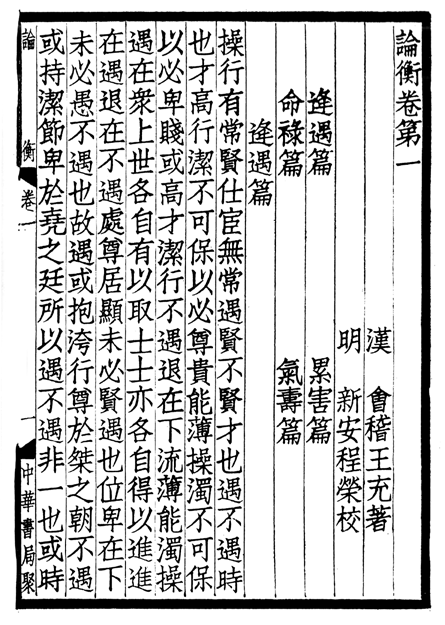 論衡卷第一
漢 會稽王充著
明 新安程榮校
逢遇篇 累害篇
命祿篇 氣壽篇
逢遇篇
操行有常賢仕宦無常遇賢不賢才也遇不遇時
也才高行潔不可保以必尊貴能薄操濁不可保
以必卑賤或高才潔行不遇退在下流薄能濁操
遇在衆上世各自有以取士士亦各自得以進進
在遇退在不遇處尊居顯未必賢遇也位卑在下
未必愚不遇也故遇或抱洿行尊於桀之朝不遇
或持潔節卑於堯之廷所以遇不遇非一也或時
論 衡 卷一 一 中華書局聚